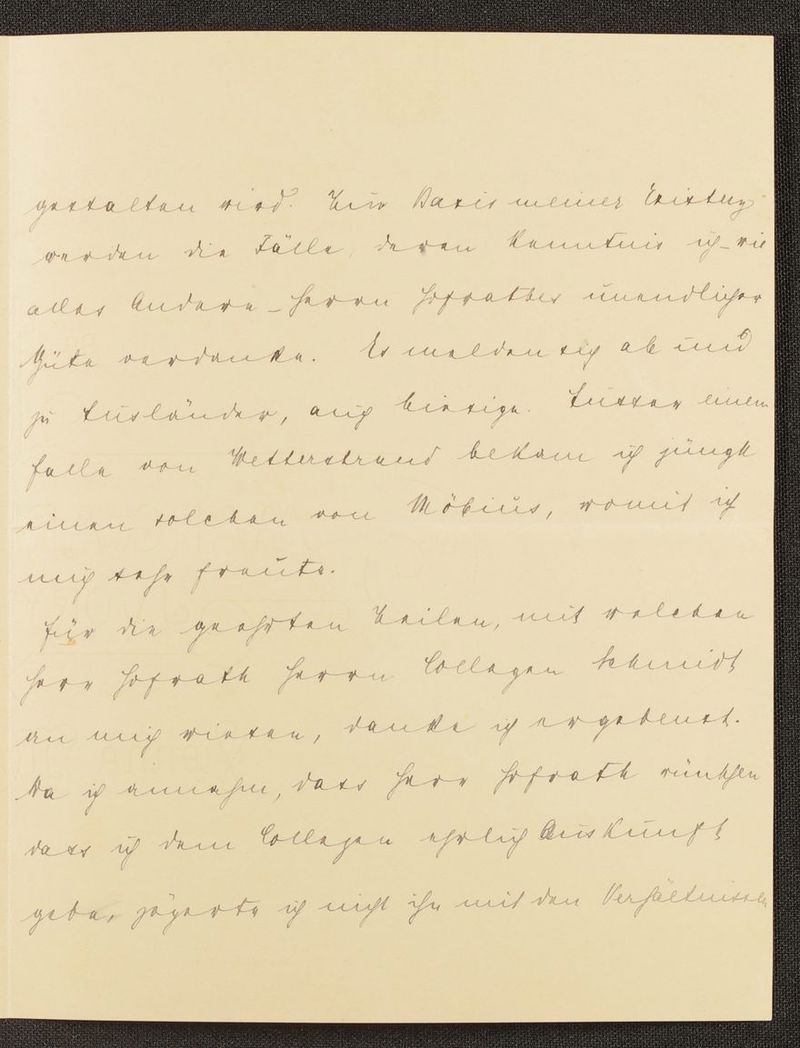 gestalten wird. Die Basis meiner Existenz
werden die Fälle, deren Kenntnis ich – wie
alles Andere – Herrn Hofrathes unendlicher
Güte verdanke. Es melden sich ab und
zu Ausländer, auch hiesige. Ausser einem
Falle von Wetterstrand bekam ich jüngst
einen solchen von Möbius, womit ich
mich sehr freute.
Für die geehrten Zeilen, mit welchen
Herr Hofrath Herrn Collegen Schmidt
an mich wiesen, danke ich ergebenst.
Da ich annahm, dass Herr Hofrath wünschen
dass ich dem Collegen ehrlich Auskunft
gebe, zögerte ich nicht ihn mit den Verhältnissen